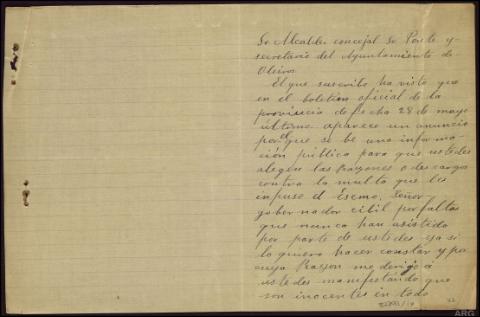 Sr Alcalde, concejal Sr Puste y
secretario del Ayuntamiento de
Oleiros
El que suscrito ha visto que
en el boletin oficial de la
provincia de fecha 28 de mayo
último aparece un anuncio
por el que se be una informa-
ción pública para que ustedes
alegen las Razones o descargos
contra la multa que les
impuso el Escmo. Señor
gobernador cibil por faltas
que nunca han asistido
por parte de ustedes ya si
lo quiero hacer constar y por
cuya Razon me dirijo a
ustedes manifestándo que
son inocentes en todo
ARG